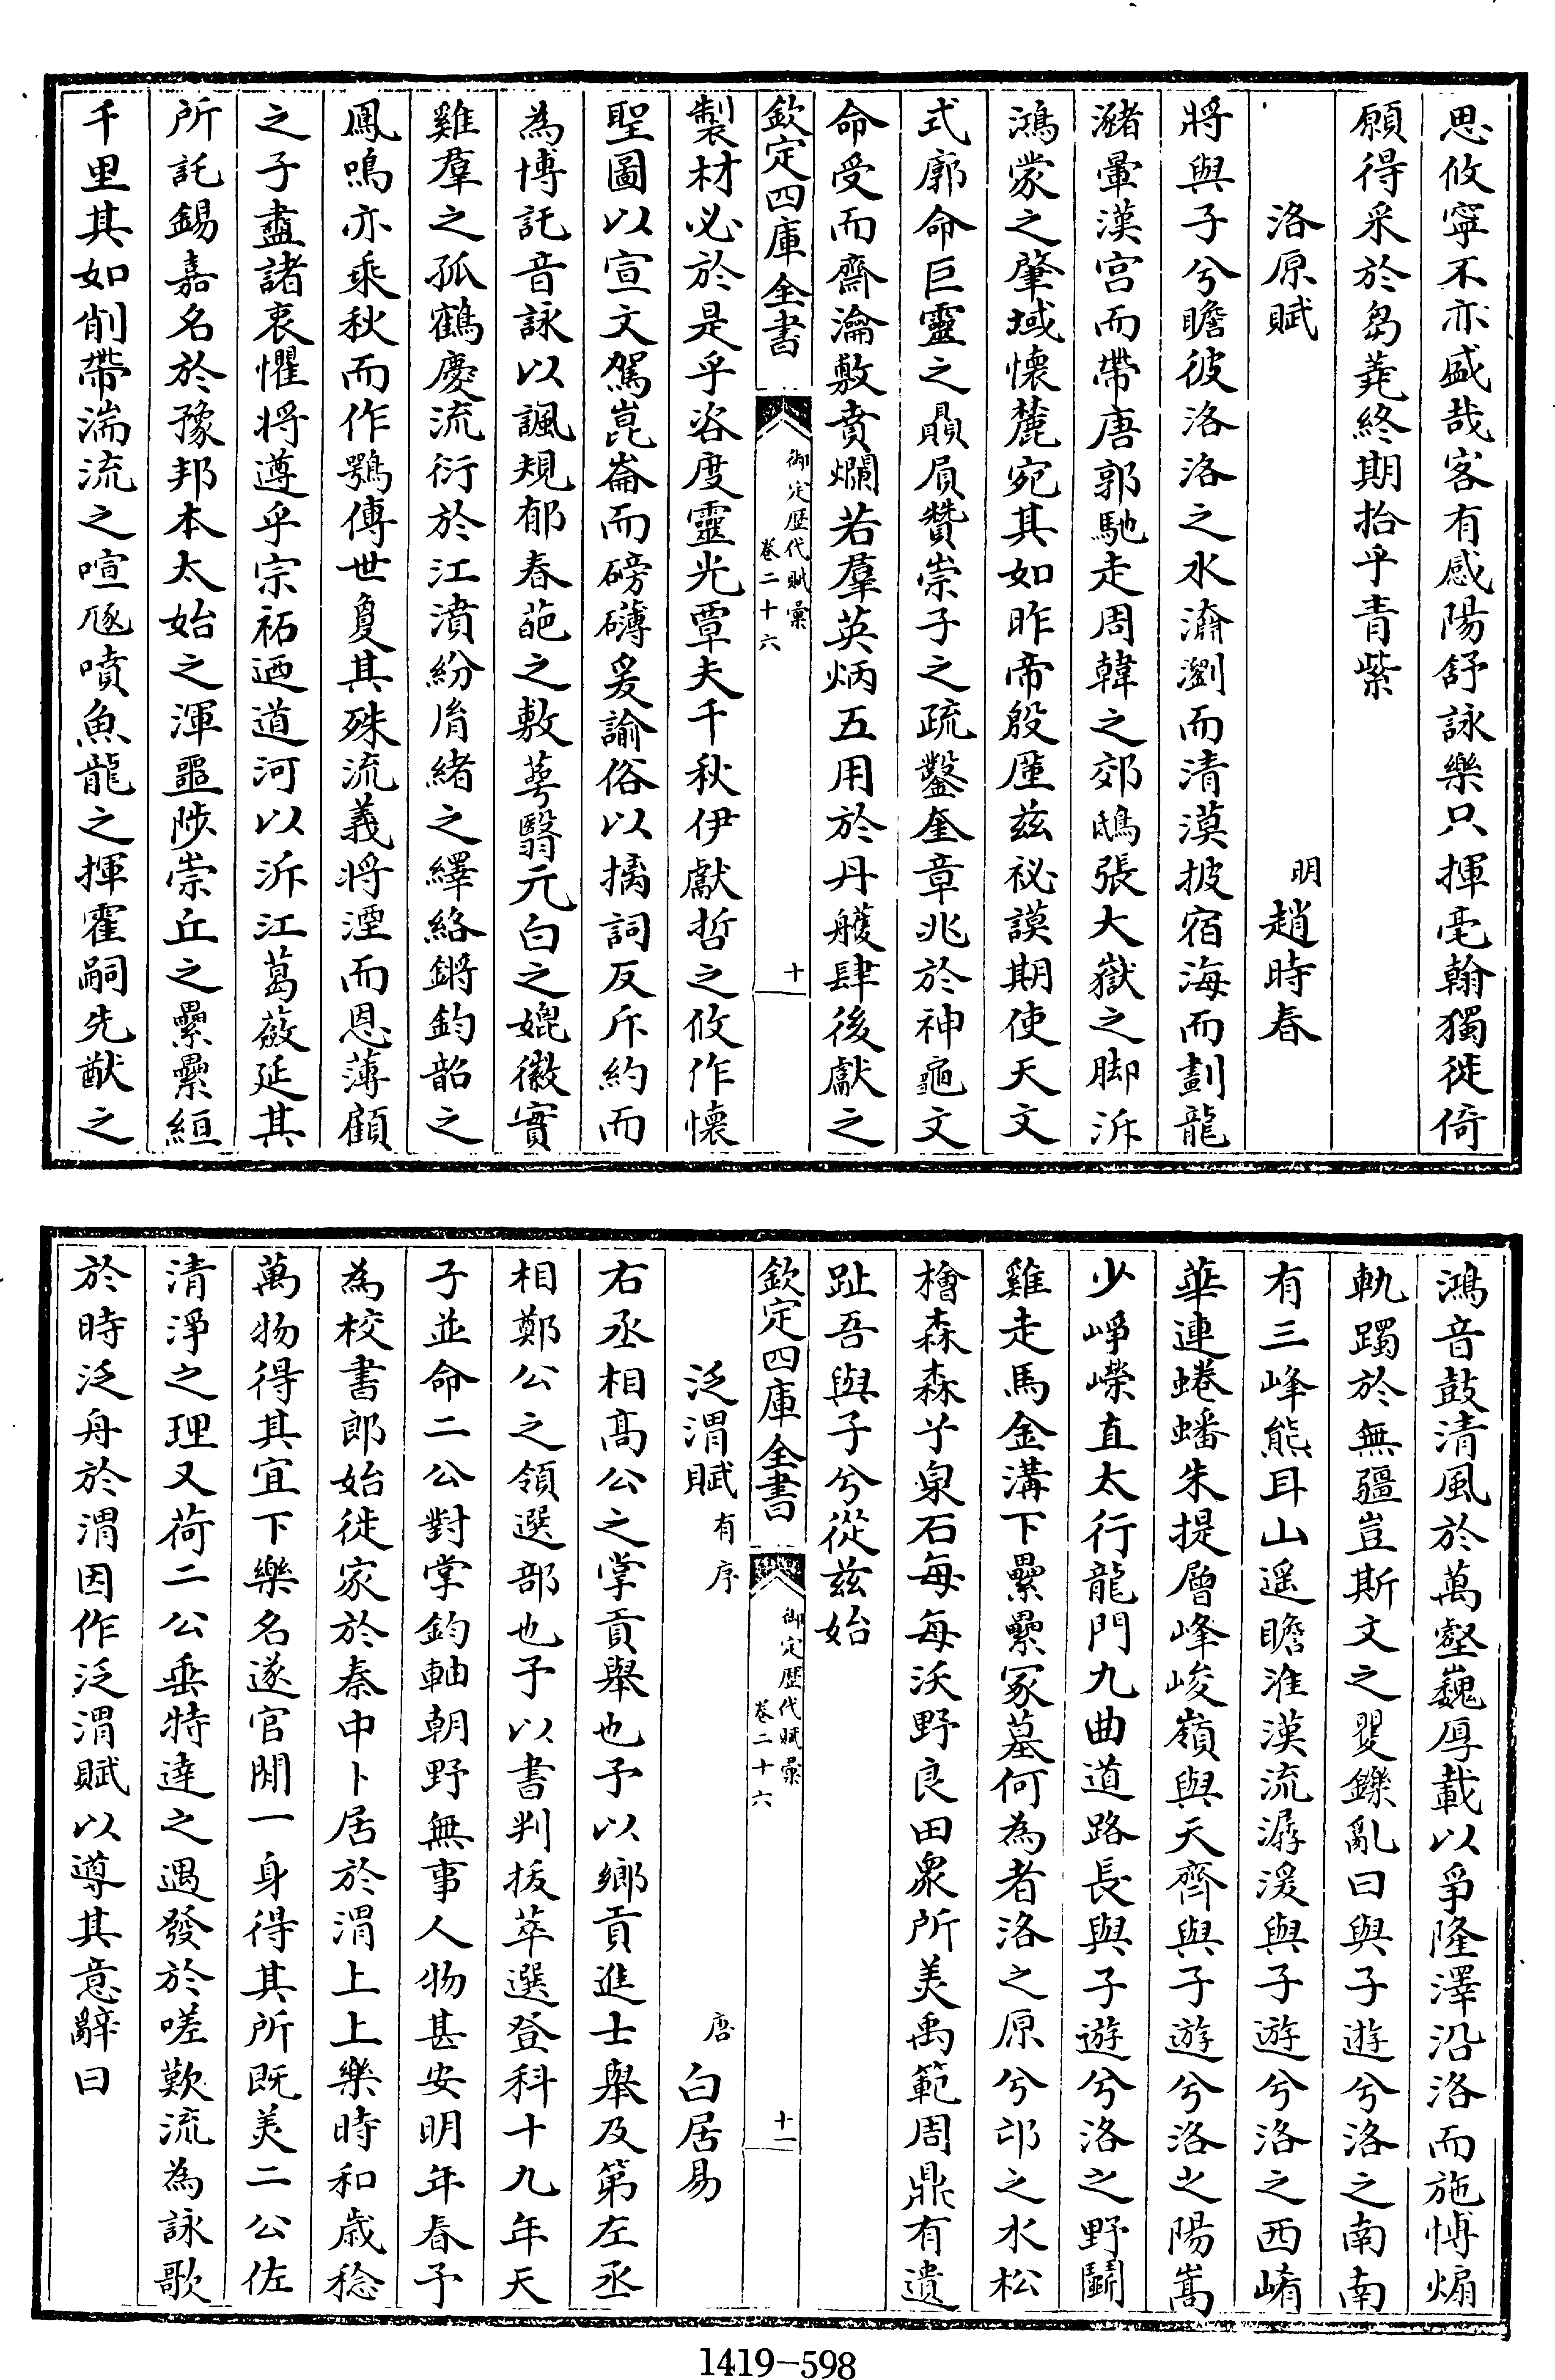 思攸寧不亦盛哉客有感陽舒詠樂只揮毫翰獨徙倚
願得采於芻蕘終期拾乎青紫
洛原賦
明趙時春
將與子兮瞻彼洛洛之水潚瀏而清漠披宿海而劃龍
瀦暈漢宫而帶唐郭馳走周韓之郊鴟張大嶽之脚泝
鴻濛之肇域懷麓宛其如昨帝殷厪兹祕謨期使天文
式廓命巨靈之贔屓贊崇子之疏鑿奎章兆於神龜文
命受而齋瀹敷賁爛若羣英炳五用於丹雘肆後獻之
欽定四庫全書
御定歷代賦彙
卷二十六
十
製材必於是乎咨度靈光覃夫千秋伊獻哲之攸作懷
聖圖以宣文駕崑崙而磅礴爰諭俗以摛詞反斥約而
為博託音詠以諷規郁春葩之敷蕚翳元白之媲徽實
雞羣之孤鶴慶流衍於江濆紛胄緒之繹絡鏘鈞韶之
鳳鳴亦乘秋而作鶚傳世夐其殊流義將湮而恩薄顧
之子盡諸衷懼將遵乎宗祏迺道河以泝江葛蔹延其
所託錫嘉名於豫邦本太始之渾噩陟崇丘之纍纍絙
千里其如削帶湍流之喧豗噴魚龍之揮霍嗣先猷之
鴻音鼓清風於萬壑巍厚載以爭隆澤沿洛而施愽煽
軌躅於無疆豈斯文之矍鑠亂曰與子遊兮洛之南南
有三峰熊耳山遥瞻淮漢流潺湲與子遊兮洛之西崤
華連蜷蟠朱提層峰峻嶺與天齊與子遊兮洛之陽嵩
少崢嶸直太行龍門九曲道路長與子遊兮洛之野鬬
雞走馬金溝下纍纍冢墓何為者洛之原兮邙之水松
檜森森兮泉石每每沃野良田衆所美禹範周鼎有遺
趾吾與子兮從兹始
欽定四庫全書
御定歷代賦彙
卷二十六
十一
泛渭賦有序
唐白居易
右丞相髙公之掌貢舉也予以鄉貢進士舉及第左丞
相鄭公之領選部也予以書判拔萃選登科十九年天
子並命二公對掌鈞軸朝野無事人物甚安明年春予
為校書郎始徙家於秦中卜居於渭上上樂時和歲稔
萬物得其宜下樂名遂官閒一身得其所既美二公佐
清淨之理又荷二公垂特達之遇發於嗟歎流為詠歌
於時泛舟於渭因作泛渭賦以導其意辭曰
1419-598